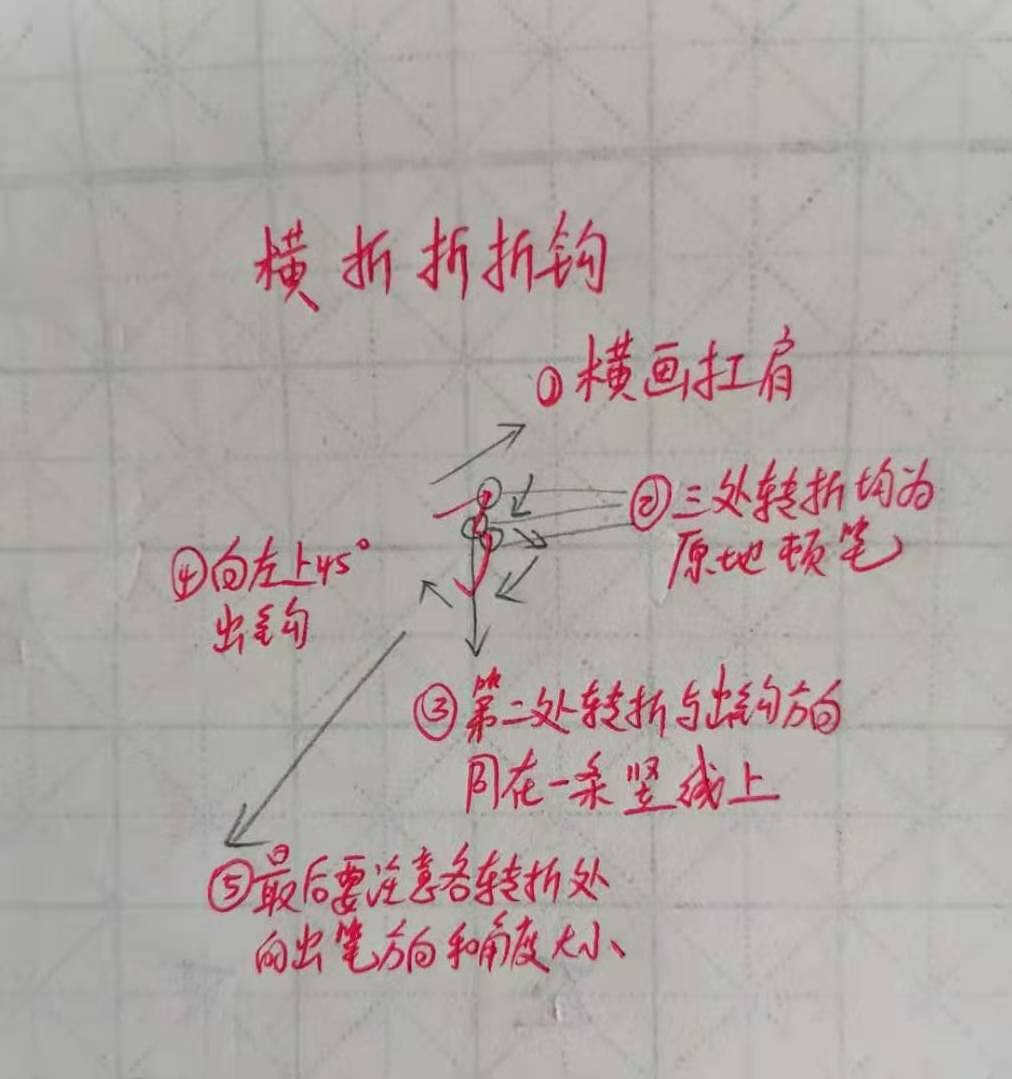 横折折折钩
①横画扛肩
②三处转折均为
原地顿笔
④向左上45°
出钩
③第二处转折与出钩方向
同在一条竖线上
⑤最后要注意各转折处
的出笔方向和角度大小、